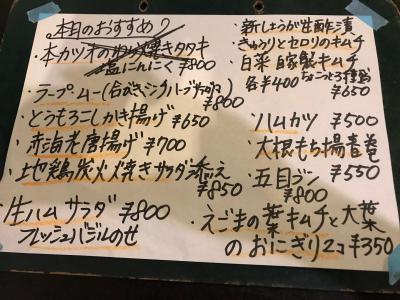 本日のおすすめ♪
・本カツオのわら焼きタタキ
塩にんにく ¥800
・ラープムー(
¥800
・とうもろこしかき揚げ ¥650
・赤海老唐揚げ ¥700
・地鶏炭火焼きサラダ添え
¥850
・生ハムサラダ ¥800
フレッシュバジルのせ
・新しょうが生酢漬
・きゅうりとセロリのキムチ
・白菜自家製キムチ
各¥400
¥650
・ハムカツ ¥500
・大根もち揚春巻
¥550
・五目 ¥800
・えごまの葉キムチと大葉
のおにぎり2コ ¥350